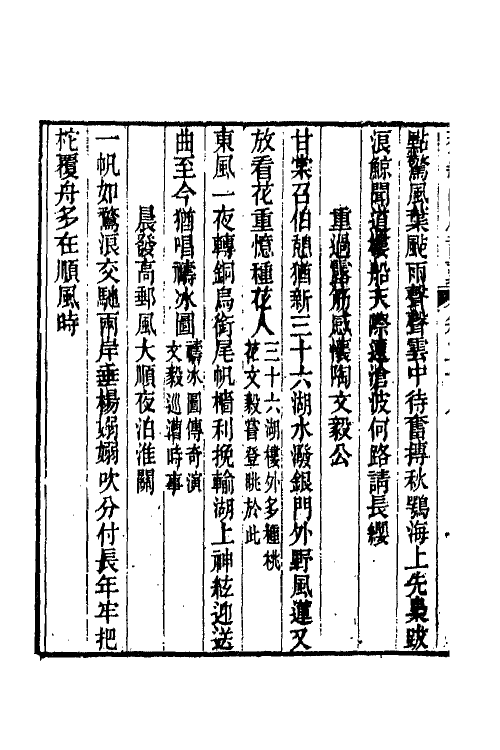 點驚風葉颭雨聲聲雲中待奮摶秋鶚海上先梟跋
浪鯨聞道樓船天際運滄波何路請長纓
重過露筋感懷陶文毅公
甘棠召伯憩猶新三十六湖水潑銀門外野風蓮又
放看花重憶種花人三十六湖樓外多種桃
花文毅嘗登眺於此
東風一夜轉銅烏銜尾帆檣利挽輸湖上神絃迎送
曲至今猶唱禱冰圖禱冰圖傳奇演
文毅巡漕時事
晨發高郵風大順夜泊淮關
一帆如驚浪交馳兩岸垂楊嫋嫋吹分付長年牢把
柁覆舟多在順風時